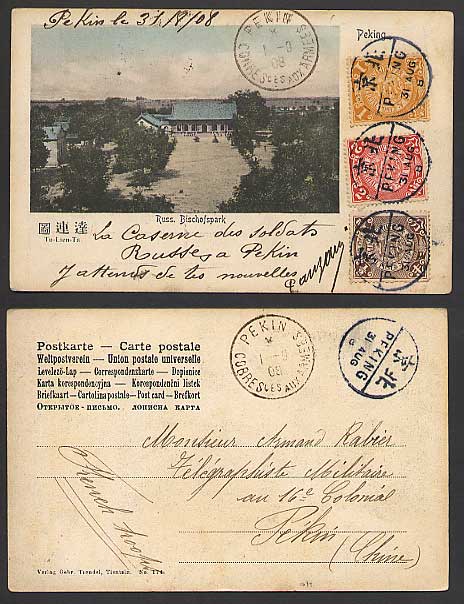 Pekin le 31/8/08
PEKIN
1-9
08
CORRESCES AUX ARMEES
Peking
北京
PEKING
31 AUG
8
北京
PEKING
31 AUG
8
北京
PEKING
31 AUG
Russ. Bischofspark
圖連達
Ta-Lien-Ta
La Caserne des soldats
Russes a Pekin
J'attends de tes nouvelles
Postkarte — Carte postale
Weltpostverein — Union postale universelle
Levelező-Lap — Correspondenzkarte — Dopisnice
Karta korespondencyjna — Korespondenční lístek
Briefkaart — Cartolina postale — Post card — Brefkort
ОТКРЫТОЕ-ПИСЬМО. ДОПИСНА КАРТА
PEKIN
1-9
08
CORRESCES AUX ARMEES
北京
PEKING
31 AUG
8
Monsieur Armand Rabier
Télégraphiste Militaire
au 16e Colonial
Pékin
(Chine)
French troops
Verlag Gebr. Truendel, Tientsin. No. 174.